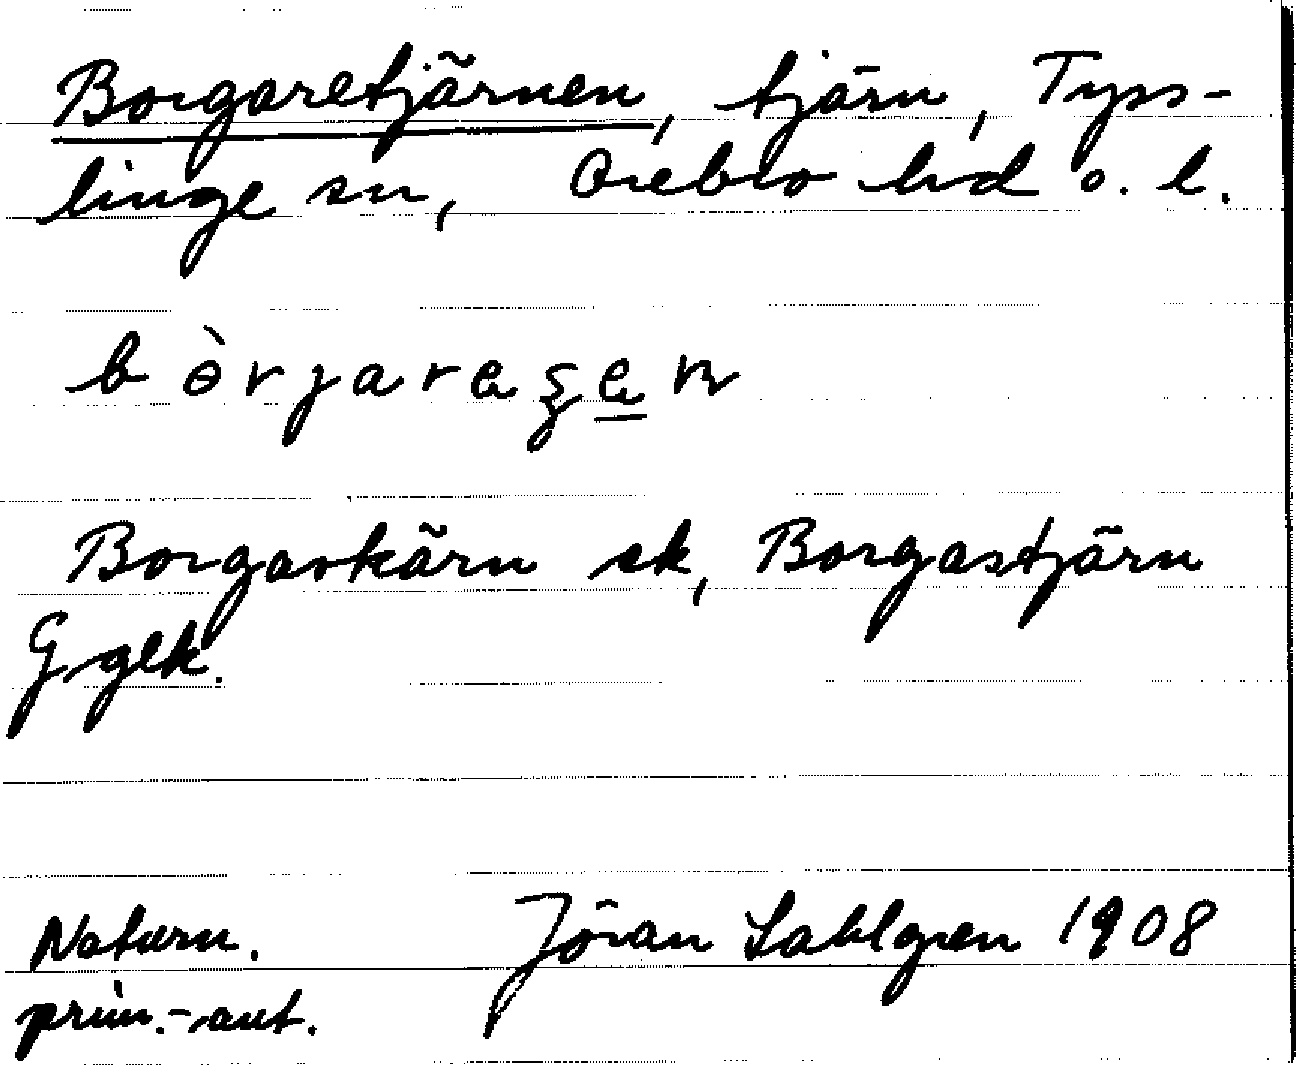 Borgaretjärnen, tjärn, Tyss-
linge sn, Örebro hd o. l.
bòrjareʂen
Borgarkärn ek, Borgastjärn
Ggek.
Naturn. Jöran Sahlgren 1908
prim.-ant.